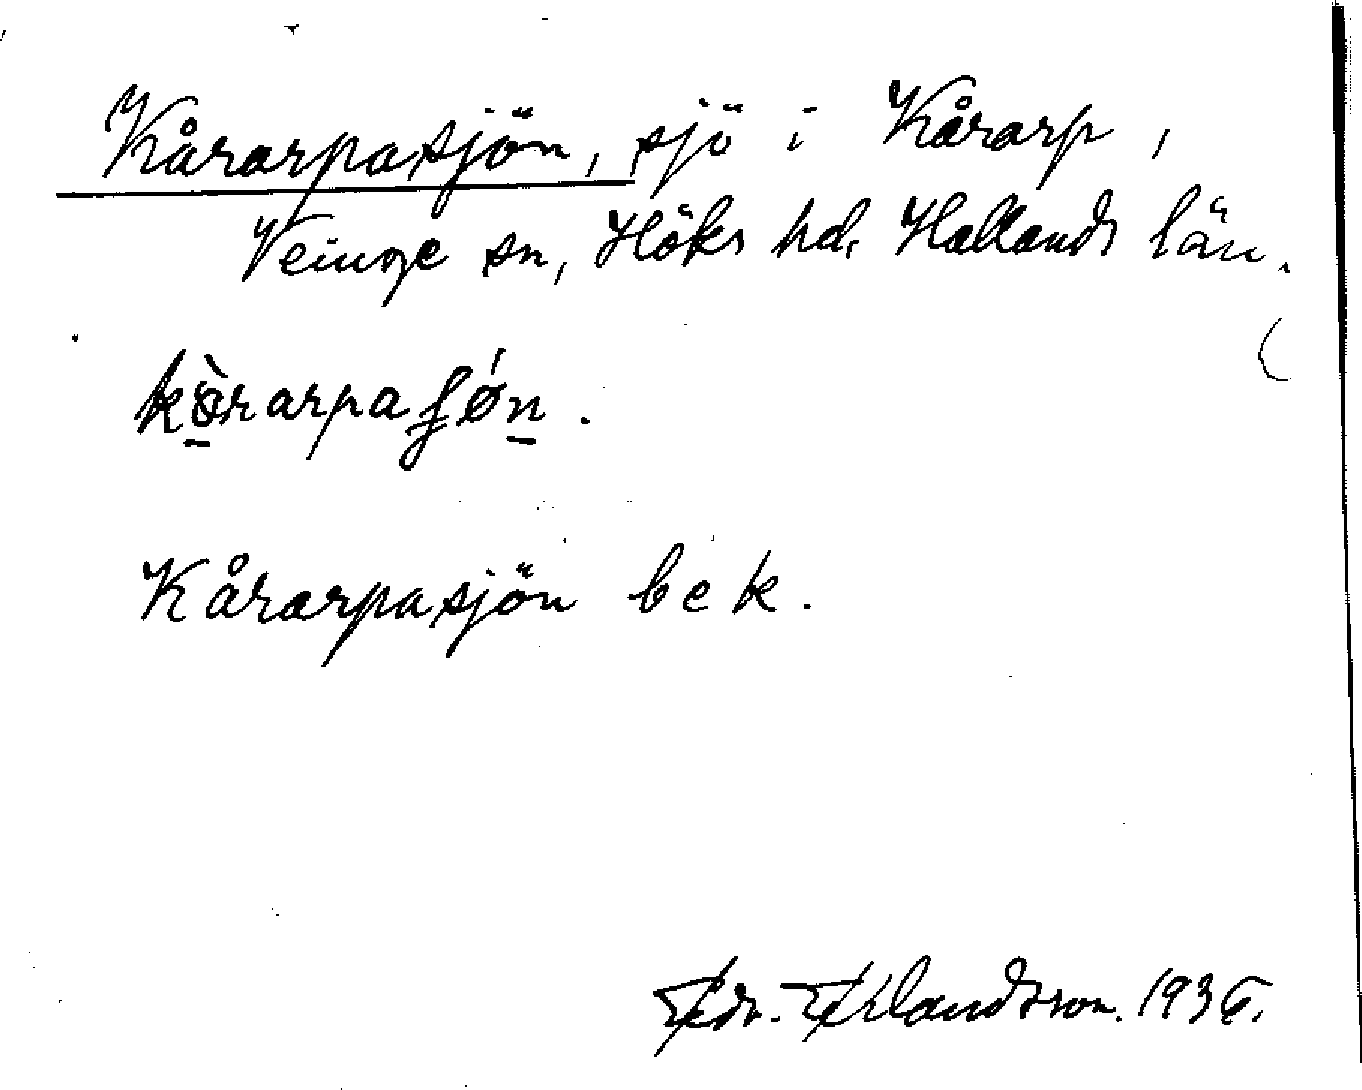 Kårarpasjön, sjö i Kårarp,
Veinge sn, Höks hd, Hallands län.
kòrarpaʃǿn.
Kårarpasjön bek.
Edv. Erlandsson. 1936.